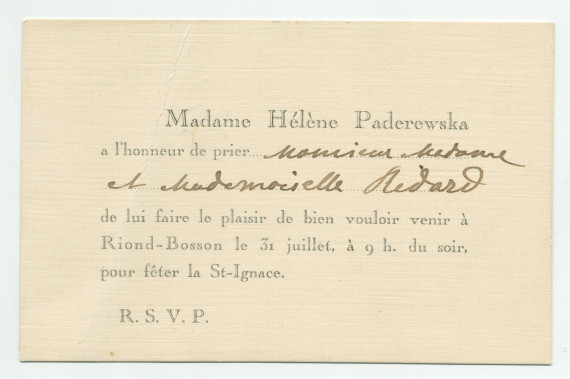 Madame Hélène Paderewska
a l'honneur de prier Monsieur Madame
et Mademoiselle Redard
de lui faire le plaisir de bien vouloir venir à
Riond-Bosson le 31 juillet, à 9 h. du soir,
pour fêter la St-Ignace.
R. S. V. P.